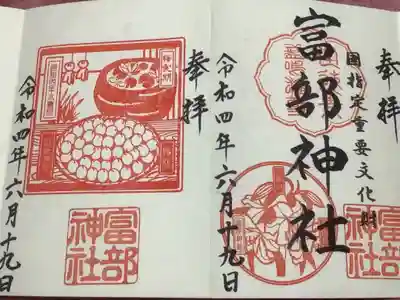 奉拝
国指定重要文化財
富部神社
令和四年六月十九日
富部
神社
奉拝
令和四年六月十九日
富部
神社